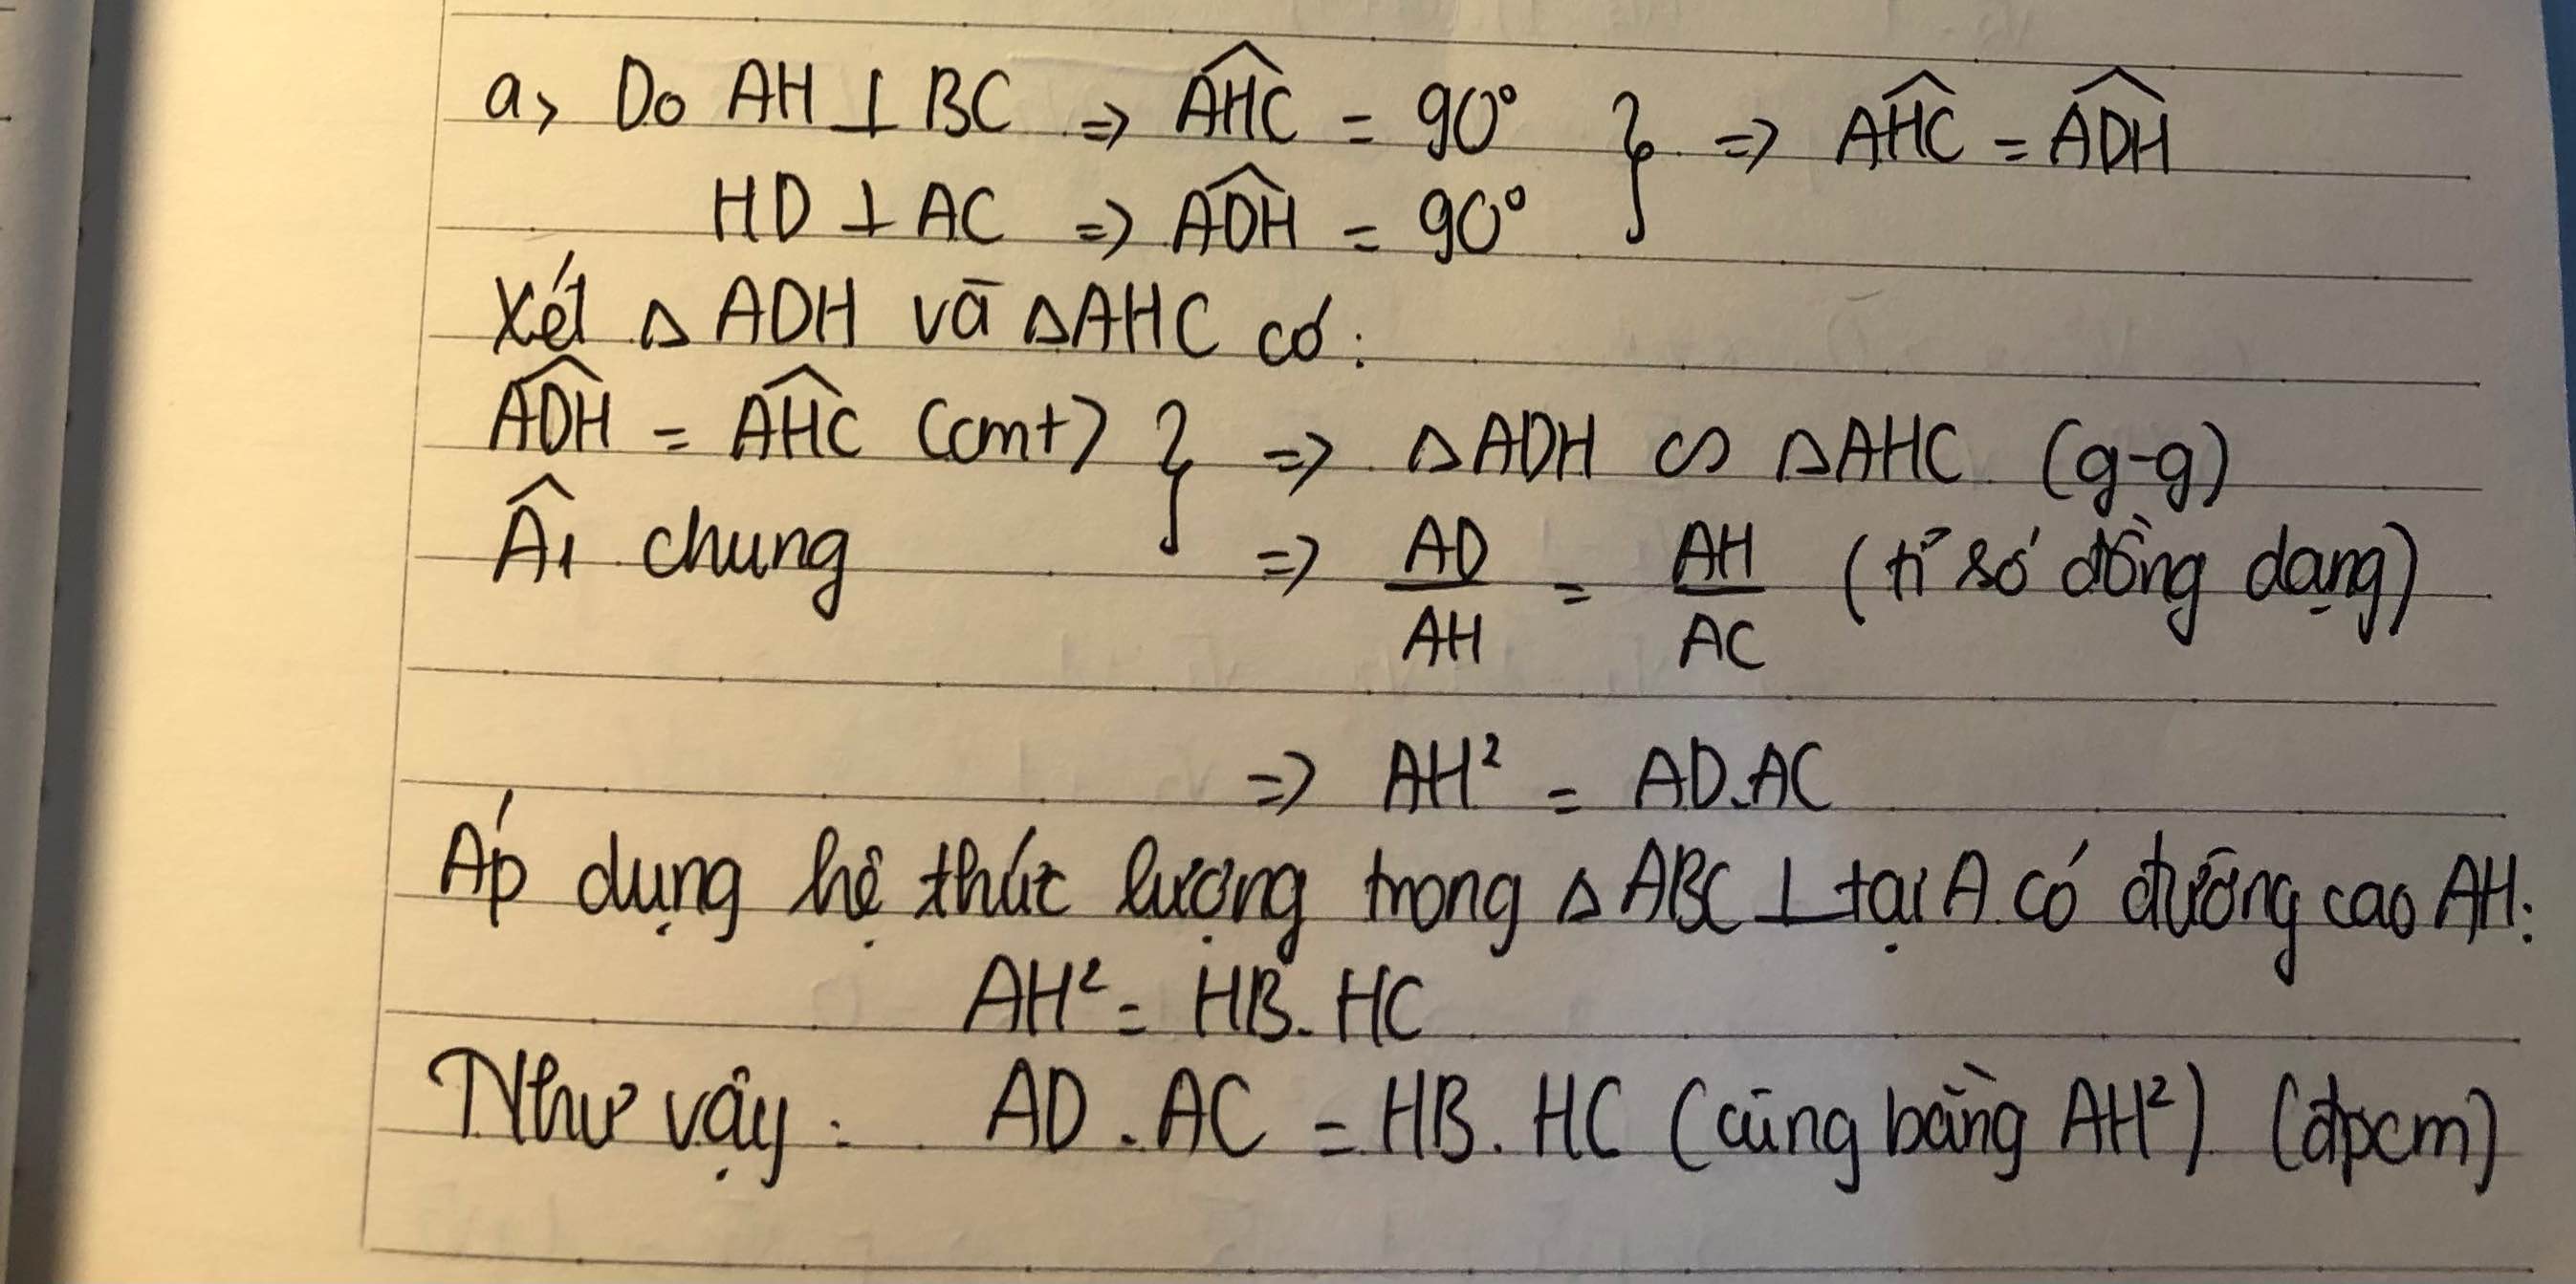 a> Do AH ⊥ BC => \widehat{AHC} = 90° } => \widehat{AHC} = \widehat{ADH}
HD ⊥ AC => \widehat{ADH} = 90°
Xét △ ADH và △AHC có:
\widehat{ADH} = \widehat{AHC} (cmt) } => △ADH ∽ △AHC (g-g)
Â1 chung => AD/AH = AH/AC (tỉ số đồng dạng)
=> AH² = AD.AC
Áp dụng hệ thức lượng trong △ ABC ⊥ tại A có đường cao AH:
AH² = HB.HC
Như vậy: AD.AC = HB.HC (cùng bằng AH²) (đpcm)